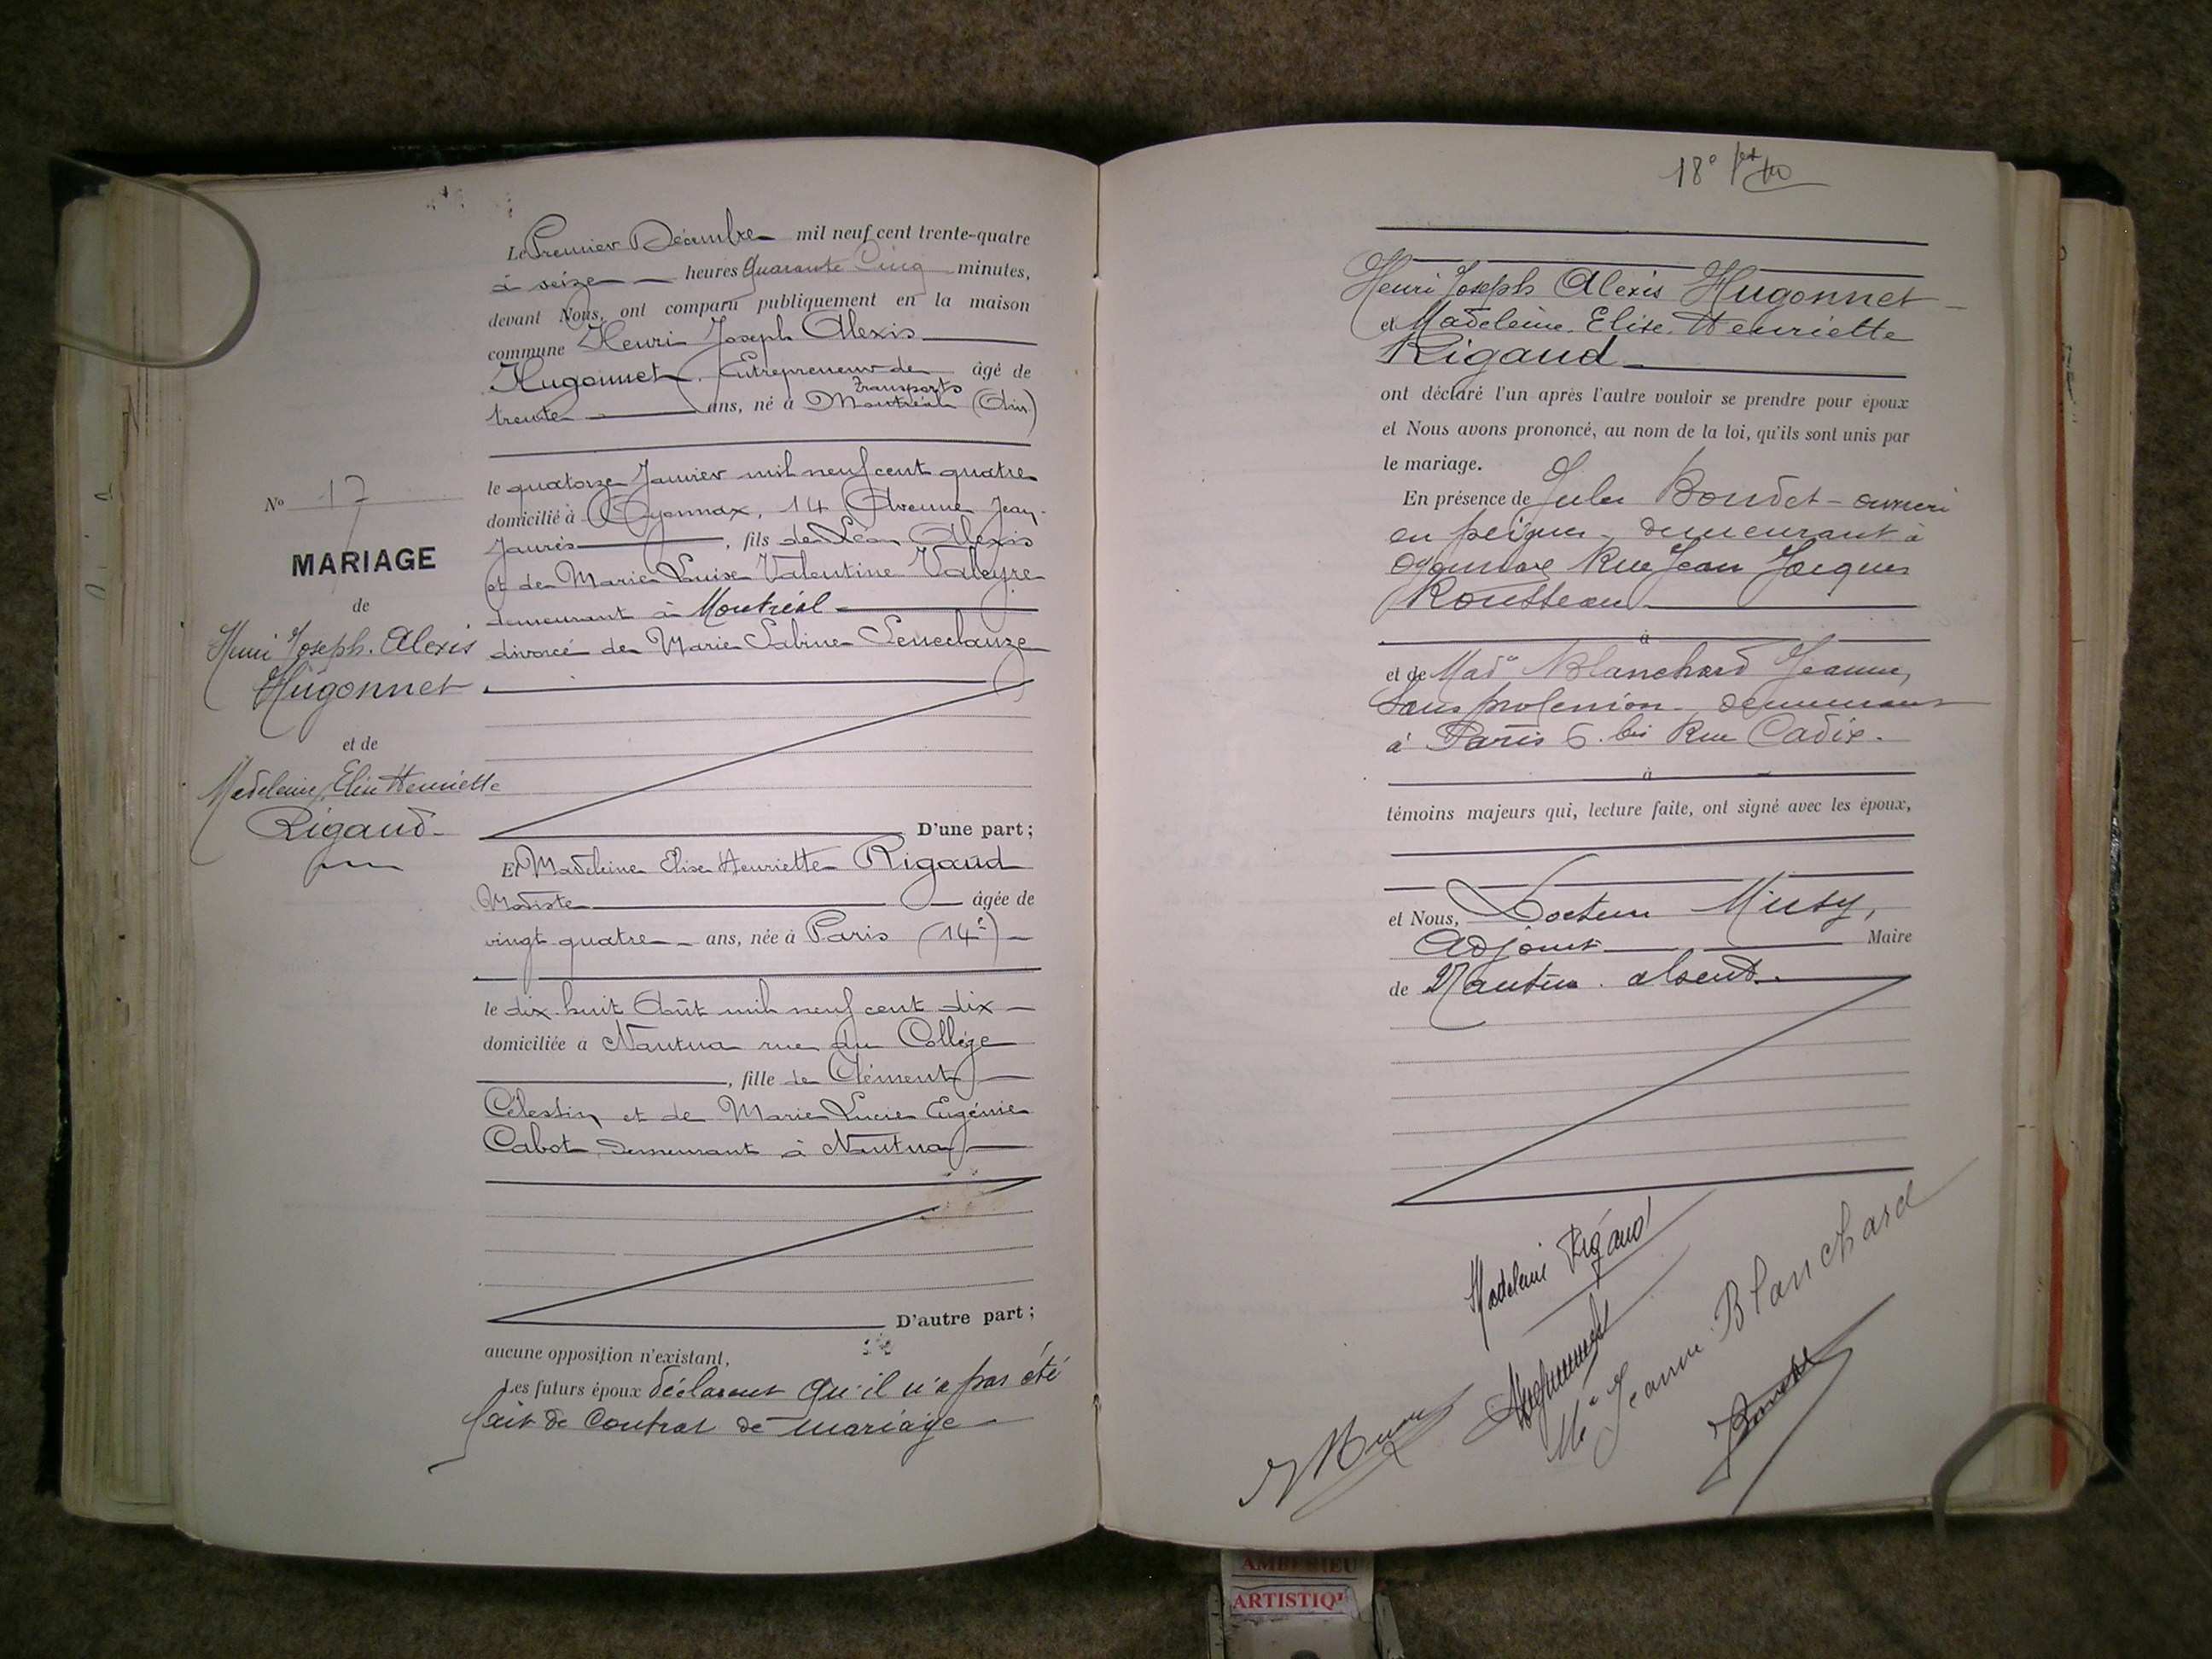 Le Premier Décembre mil neuf cent trente-quatre
à seize heures Quarante Cinq minutes,
devant Nous, ont comparu publiquement en la maison
commune Henri Joseph Alexis
Hugonnet, Entrepreneur de transports âgé de
trente ans, né à Montréal (Ain)
le quatorze Janvier mil neuf cent quatre
domicilié à Oyonnax, 14 Avenue Jean-
Jaurès, fils de Léon Alexis
et de Marie Luise Valentine Valeyre
demeurant à Montréal
divorcé de Marie Sabine Seneclauze
D'une part;
Et Madeleine Elise Henriette Rigaud
Modiste âgée de
vingt quatre ans, née à Paris (14e)
le dix-huit Août mil neuf cent dix
domiciliée à Nantua rue du Collège
, fille de Clément
Célestin et de Marie Lucie Eugénie
Cabot demeurant à Nantua
D'autre part;
aucune opposition n'existant,
Les futurs époux déclarent qu'il n'a pas été
fait de contrat de mariage
No 17
MARIAGE
de
Henri Joseph. Alexis
Hugonnet
et de
Madeleine Elise Henriette
Rigaud
18e
Henri Joseph Alexis Hugonnet
et Madeleine. Elise. Henriette
Rigaud
ont déclaré l'un après l'autre vouloir se prendre pour époux
et Nous avons prononcé, au nom de la loi, qu'ils sont unis par
le mariage.
En présence de Jules Boudet - ouvrier
en peignes - demeurant à
Oyonnax Rue Jean Jacques
Rousseau
à
et de Made Blanchard Jeanne,
sans profession - demeurant
à Paris 6 bis Rue Cadix.
à
témoins majeurs qui, lecture faite, ont signé avec les époux,
et Nous, Docteur Musy,
Adjoint Maire
de Nantua. absent.
Madeleine Rigaud
Hugonnet
Me Jeanne Blanchard
Boudet
AMBERIEU
ARTISTIQ